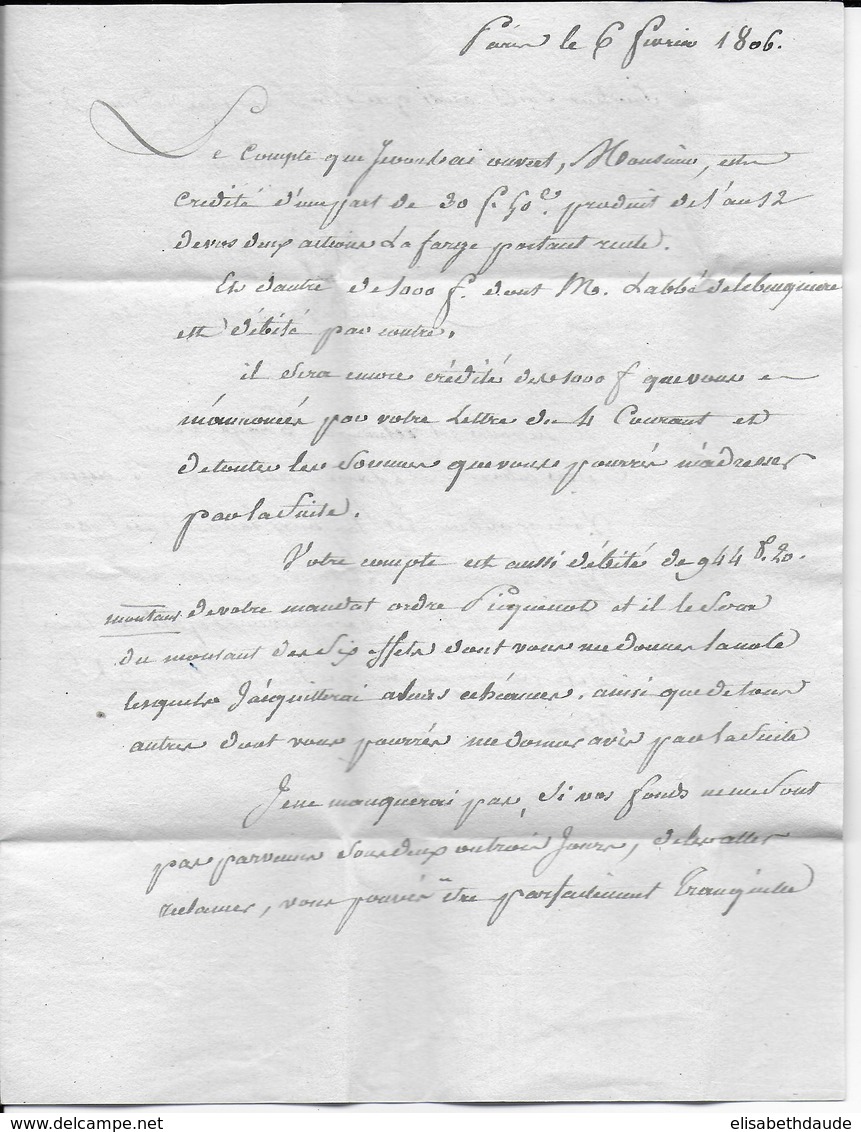 Paris le 6 fevrier 1806.
Le Compte que Je vous ai ouvert, Monsieur, est
Crédité d'une part de 30 f. 50 c. produit de l'an 12
de vos deux actions Lafarge portant rente.
Et d'autre de 1000 f. dont M. Labbé
est débité par contre.
il sera encore crédité des 1000 f que vous
m'annoncés par votre Lettre du 4 Courant et
de toutes les sommes que vous pourrés m'adresser
par la suite.
Votre compte est aussi débité de 944 f. 20.
montant de votre mandat ordre Picquenot et il le sera
du montant des Six effets dont vous me donnes la note
lesquels J'acquitterai a leurs echéances, ainsi que de tous
autres dont vous pourrés me donner avis par la Suite
Je ne manquerai pas, Si vos fonds ne me sont
pas parvenus sous deux ou trois Jours, de les aller
reclamer, vous pouvés être parfaitement Tranquille
elisabethdaude